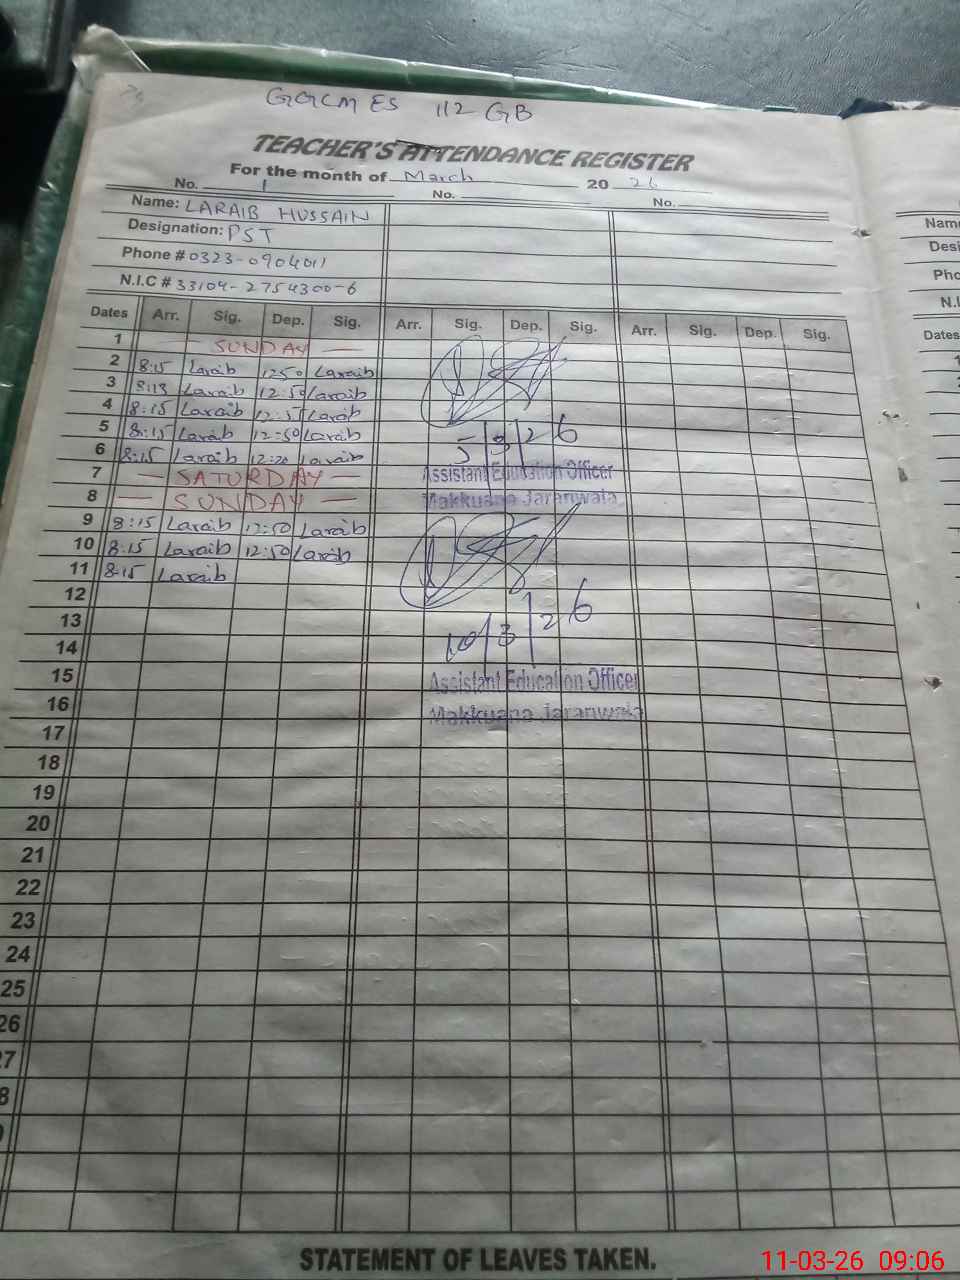 GGCMES 112 GB
TEACHER'S ATTENDANCE REGISTER
For the month of March 20 26
No. 1 No. No.
Name: LARAIB HUSSAIN
Designation: PST
Phone # 0323-0904011
N.I.C # 33104-2754300-6
Dates Arr. Sig. Dep. Sig. Arr. Sig. Dep. Sig. Arr. Sig. Dep. Sig.
1 — SUNDAY —
2 8:15 Laraib 12:50 Laraib
3 8:13 Laraib 12:50 Laraib
4 8:15 Laraib Laraib
5 8:15 Laraib 12:50 Laraib
6 8:15 Laraib 12:20 Laraib
5/3/26
7 — SATURDAY —
Assistant Education Officer
8 — SUNDAY —
Makkuana Jaranwala
9 8:15 Laraib 12:50 Laraib
10 8:15 Laraib 12:50 Laraib
11 8:15 Laraib
12
13
10/3/26
14
15
Assistant Education Officer
16
Makkuana Jaranwala
17
18
19
20
21
22
23
24
25
26
27
8
STATEMENT OF LEAVES TAKEN.
11-03-26 09:06
Name
Desi
Pho
N.I
Dates